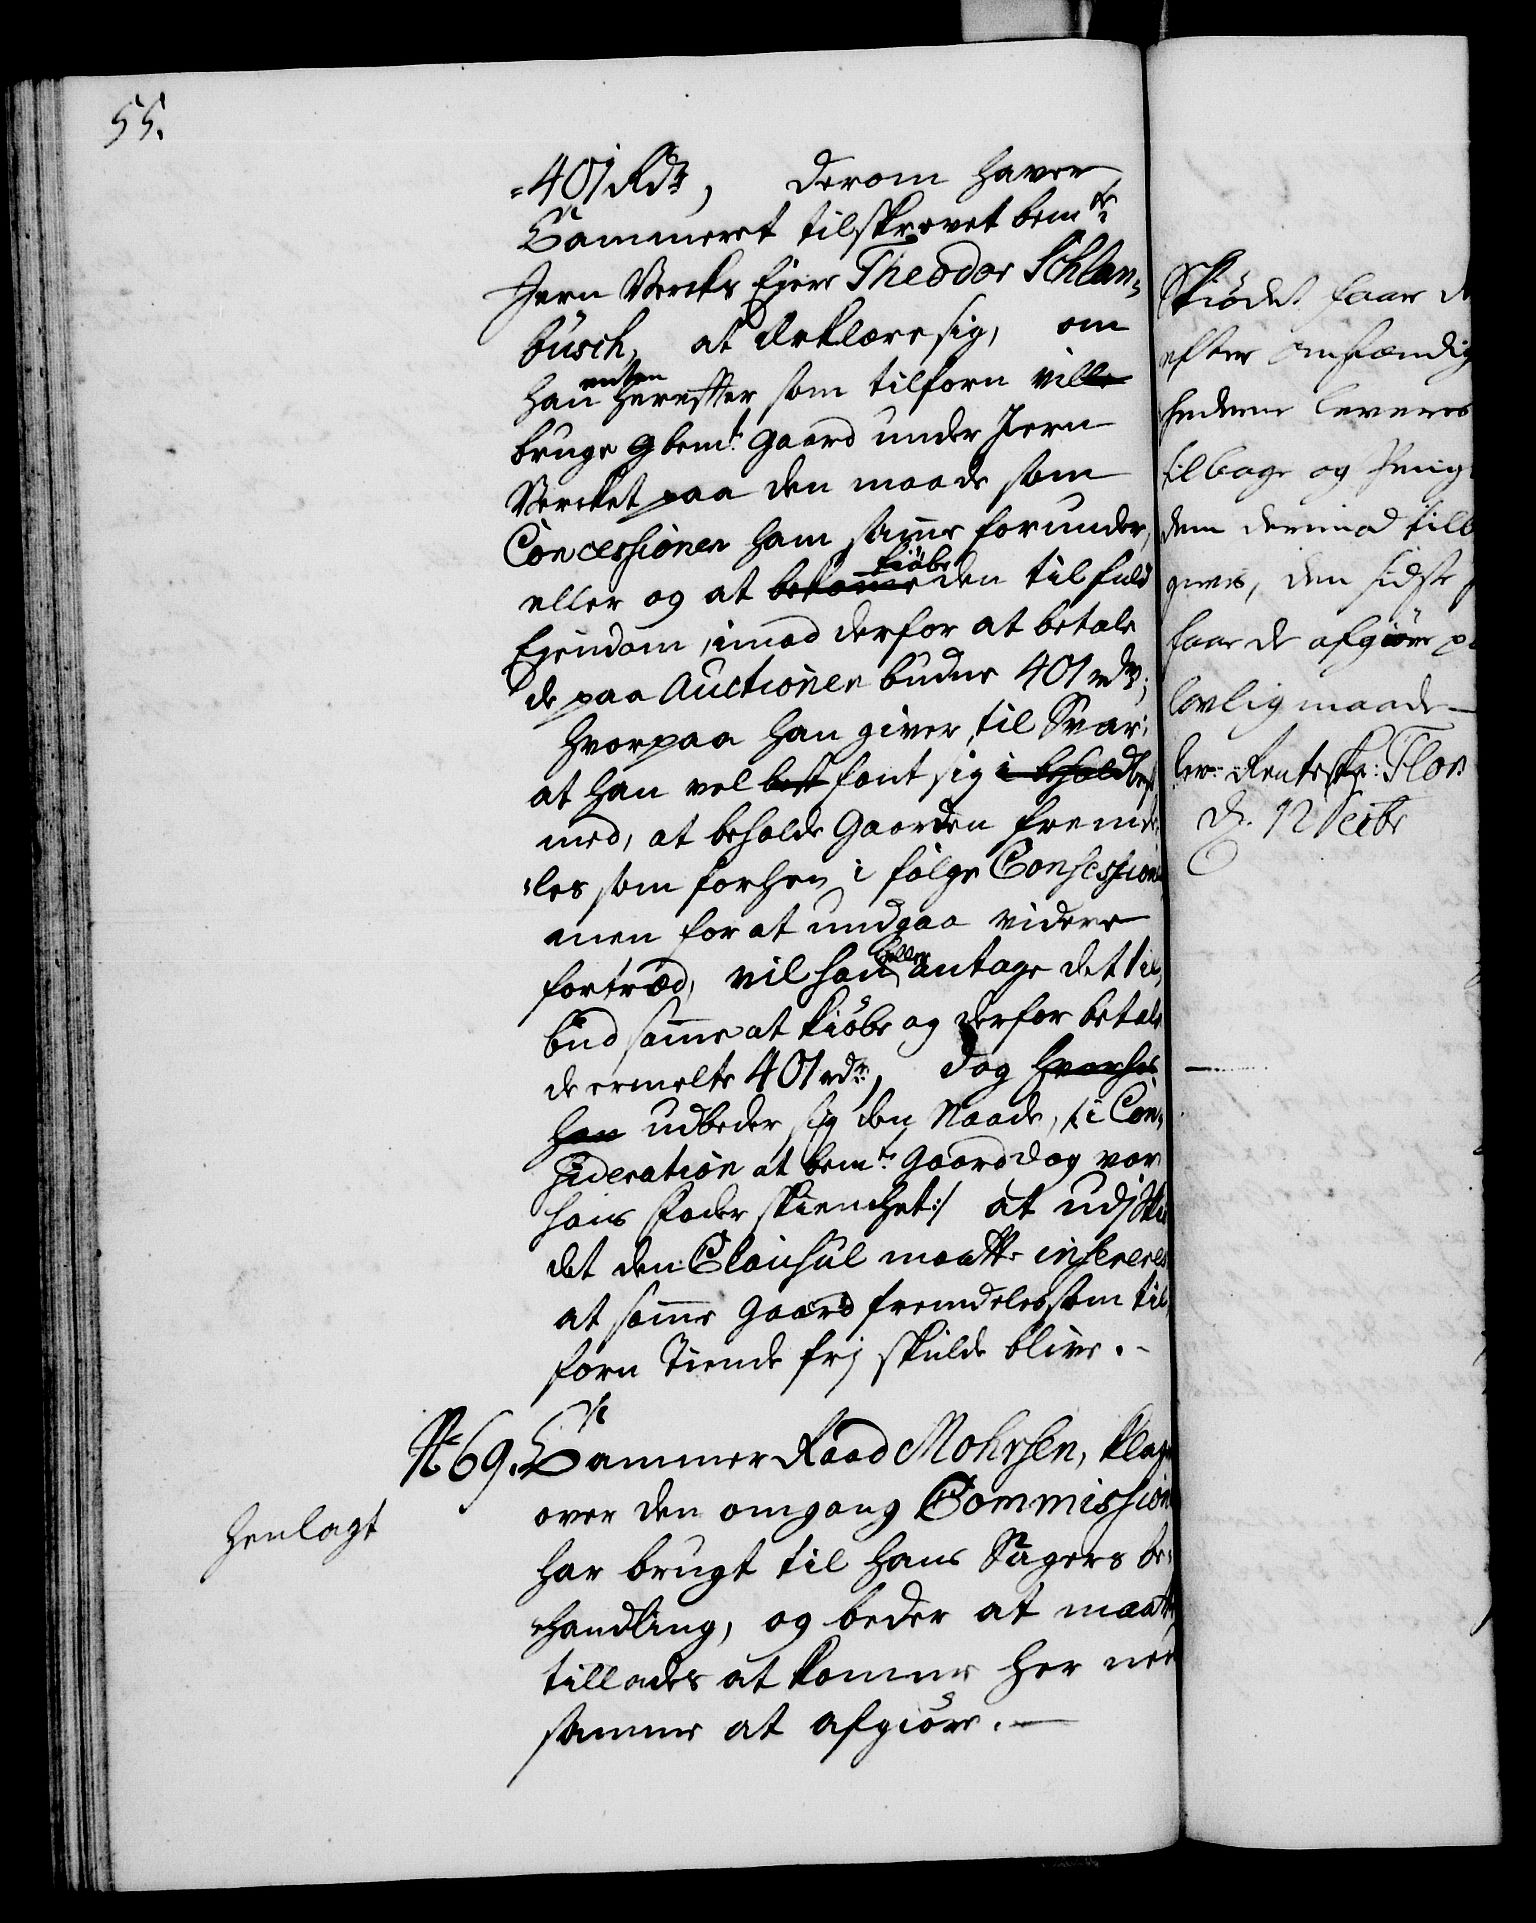 55.
401 Rdr, derom haver
Cammeret tilskrevet bemte
Jern Vercks Ejere Theodor Schlan=
busch, at erklære sig, om
han enten herefter som tilforn ville
bruge gbemte Gaard under Jern
Vercket paa den maade som
Concessionen ham samme forunder,
eller og at bekomme kiøbe den til fuld
Ejendom, imod derfor at betale
de paa Auctionen budne 401 rdr;
hvorpaa han giver til Svar:
at han vel best fant sig i behold best
med, at beholde Gaarden fremde=
=les som forhen i følge Concession
men for at undgaa videre
fortræd, vil han heller antage det til=
bud samme at kiøbe og derfor betale
de ermelte 401 rdr, dog hvorhos
han udbeder sig den Naade, /: i Con=
sideration at bemte Gaard dog var
hans Fader skienchet :/ at udj Skiø
det den Clausul maatte insereres
at samme Gaard fremdeles som til=
forn Tiende frj skulde blive. -
No 69. Cammer Raad Mohrsen, klager
over den omgang Commission
har brugt til hans Sagers be=
handling, og beder at maatte
tillades at komme her ned
samme at afgiøre. —
Henlagt
Skiødet faar de
efter omstændig
hederne leveres
tilbage og Penge
dem derimod tilba
gives, den sidste
faar de afgiøre paa
lovlig maade —
lev. Renteskr: Flor
d. 12 Xbr